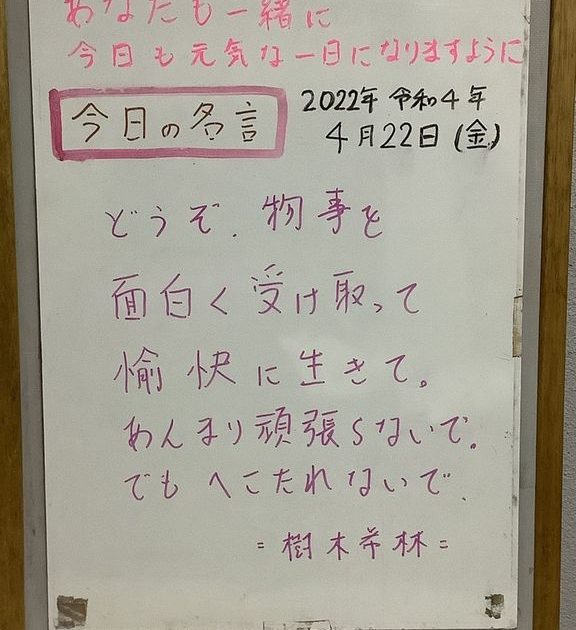 あなたも一緒に
今日も元気な一日になりますように
今日の名言
2022年 令和4年
4月22日(金)
どうぞ、物事を
面白く受け取って
愉快に生きて。
あんまり頑張らないで。
でもへこたれないで、
=樹木希林=